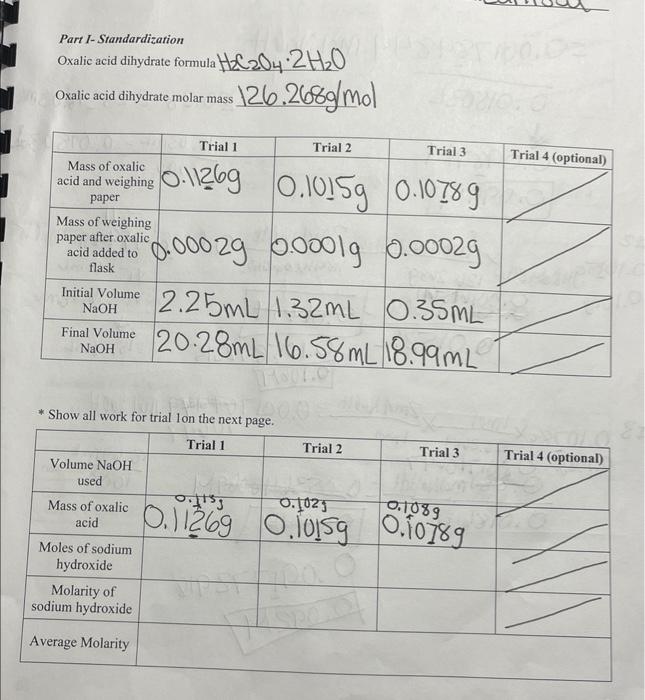 Part I- Standardization
Oxalic acid dihydrate formula H2C2O4·2H2O
Oxalic acid dihydrate molar mass 126.268g/mol
Trial 1 Trial 2 Trial 3 Trial 4 (optional)
Mass of oxalic
acid and weighing
paper
0.1126g 0.1015g 0.1078g
Mass of weighing
paper after oxalic
acid added to
flask
0.0002g 0.0001g 0.0002g
Initial Volume
NaOH
2.25mL 1.32mL 0.35mL
Final Volume
NaOH
20.28mL 16.58mL 18.99mL
* Show all work for trial 1on the next page.
Trial 1 Trial 2 Trial 3 Trial 4 (optional)
Volume NaOH
used
Mass of oxalic
acid
0.113g 0.102g 0.108g
0.1126g 0.1015g 0.1078g
Moles of sodium
hydroxide
Molarity of
sodium hydroxide
Average Molarity